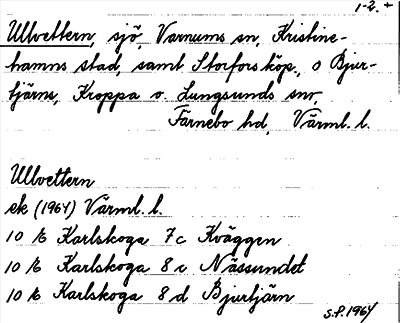 1-2. +
Ullvettern, sjö, Varnums sn, Kristine-
hamns stad, samt Storfors köp., o Bjur-
tjärns, Kroppa o. Lungsunds snr,
Färnebo hd, Värml. l.
Ullvettern
ek (1964) Värml. l.
10 E Karlskoga 7c Kväggen
10 E Karlskoga 8c Nässundet
10 E Karlskoga 8d Bjurtjärn
S.P. 1964